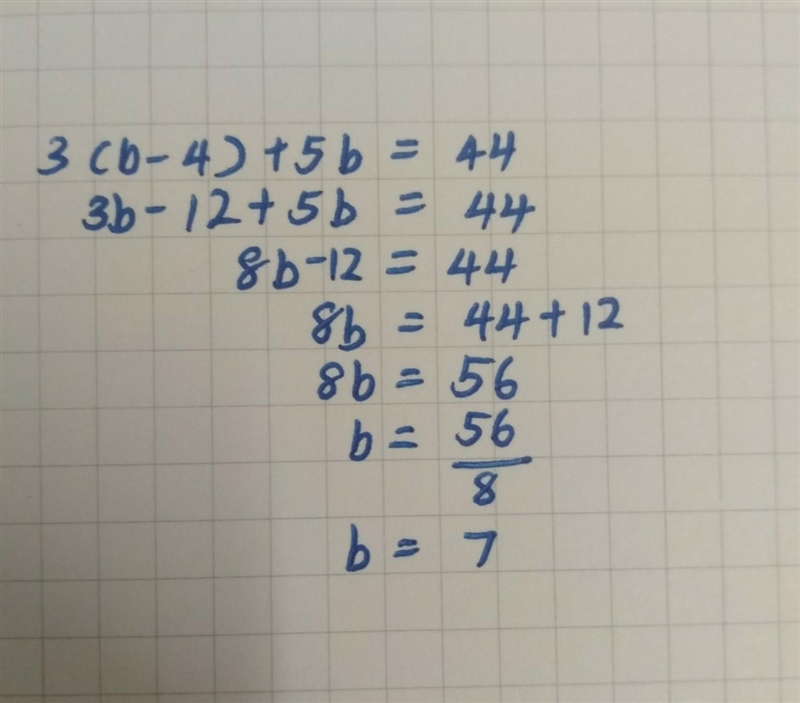 3(b-4)+5b = 44
3b-12+5b = 44
8b-12 = 44
8b = 44+12
8b = 56
b = 56/8
b = 7